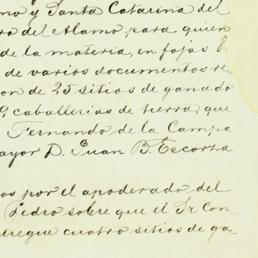 mo y Santa Catarina del
ro del Alamo, para quien
de la materia, en fojas
de varios documentos re
on de 25 sitios de ganado
9 caballerias de tierra que
Fernando de la Campa
ayor D. Juan B. Escorza
os por el apoderado del
Pedro sobre que el Sr Con
tregue cuatro sitios de ga-